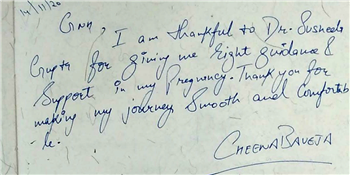 14/11/20
I am thankful to Dr. Susheela
Gupta for giving me right guidance &
Support in my Pregnancy. Thank you for
making my journey Smooth and Comfortab
-le.
CHEENA BAVEJA